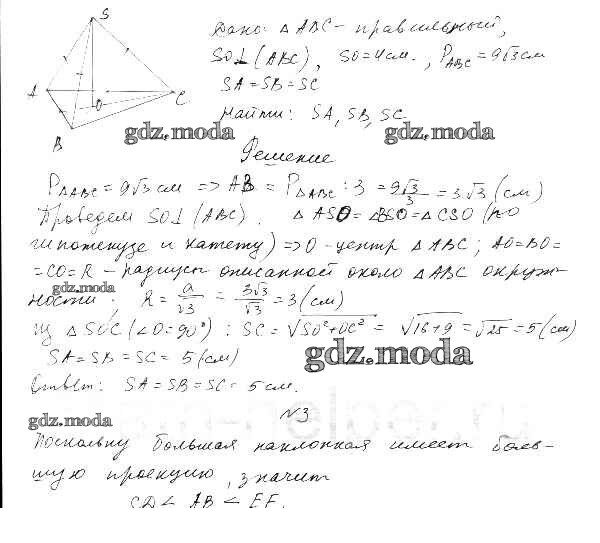 S
A
O
C
B
Дано: △ABC - правильный,
SO⊥(ABC), SO=4см., P_ABC=9√3см
SA=SB=SC
Найти: SA, SB, SC
gdz.moda gdz.moda
Решение
P△ABC=9√3 см => AB = P△ABC:3 = 9√3/3 = 3√3 (см)
Проведем SO⊥(ABC). △ASO=△BSO=△CSO (по
гипотенузе и катету) => O - центр △ABC; AO=BO=
=CO=R - радиусы описанной около △ABC окруж-
gdz.moda
ности; R = a/√3 = 3√3/√3 = 3 (см)
Из △SOC (∠O=90°): SC=√SO²+OC² = √16+9 = √25 = 5 (см)
gdz.moda
SA=SB=SC=5 (см)
Ответ: SA=SB=SC=5см.
gdz.moda
№3
Поскольку большая наклонная имеет боль-
шую проекцию, значит
CD<AB<EF.